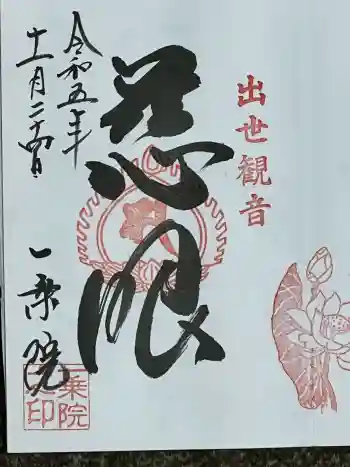 出世観音
慈眼
令和五年
十一月二十四日
一乗院